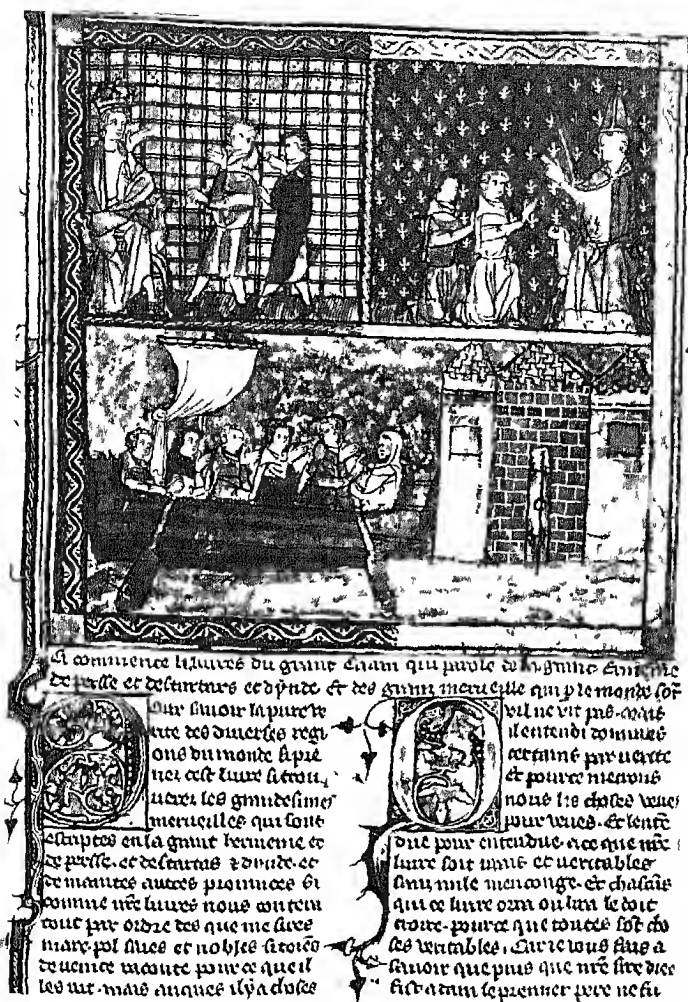 Ci commence li liures du graunt Caam qui parole de la graunt Ermenie
de persse et des tartars et dynde. Et des grans merueille qui p le monde sont
Pour sauoir la pure ve
rite des diuerses regi
ons du monde. si pre
nes cest liure si trou
ueres les grandesimes
merueilles qui sont
escriptes en la grant hermenie et
de persse. et des tartas & dynde. et
de maintes autres prouinces. Si
comme nre liures nous contera
tout par ordre des que me sires
marc pol saies et nobles citoiens
de venice raconte pour ce que il
les vit. mais auques il y a choses
Qvil ne vit pas. mais
il entendi dommes
certains par verite
Et pour ce metrons
nous les choses veues
pour veues. et lenten
due pour entendue. a ce que nre
liure soit vrais et veritables
sans nule mencongne. et chascuns
qui ce liure orra ou lira le doit
croire. pour ce que toutes sont cho
ses veritables. Car ie vous fais a
sauoir que puis que nre sire diex
fist adam le premier pere ne fu